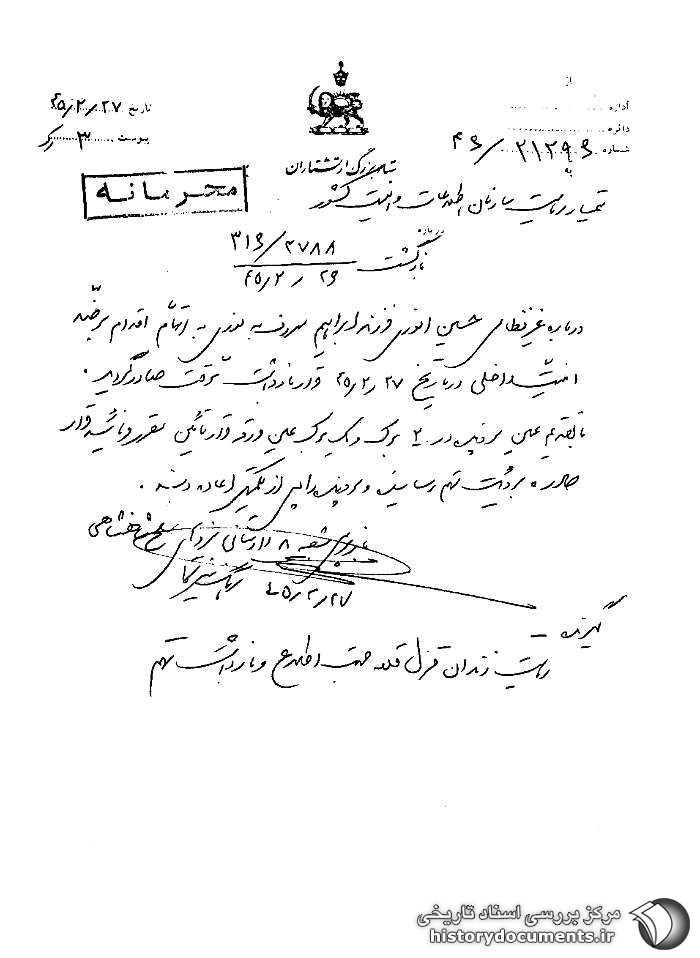 از
اداره
دائره
شماره ۲۱۲۹۶/۴۶
به
تاریخ ۴۵/۲/۲۷
پیوست ۳ برگ
محرمانه
ستاد بزرگ ارتشتاران
تیمسار ریاست سازمان اطلاعات و امنیت کشور
درباره
بازگشت ۳۱۶/۲۷۸۸
۴۵/۲/۲۶
درباره غیرنظامی حسین انوری فرزند ابراهیم معروف به نوری به اتهام اقدام برضد
امنیت داخلی در تاریخ ۴۵/۲/۲۷ قرار بازداشت موقت صادر گردید.
با تقدیم عین پرونده در ۲ برگ و یک برگ عین ورقه قرار تأمین مقرر فرمائید قرار
صادره برویت متهم رسانیده و پرونده را پس از تکمیل اعاده دهند.
بازپرس شعبه ۸ دادستانی نیروهای مسلح شاهنشاهی
۴۵/۲/۲۷
گیرنده –
ریاست زندان قزل قلعه جهت اطلاع و بازداشت متهم
مرکز بررسی اسناد تاریخی
historydocuments.ir